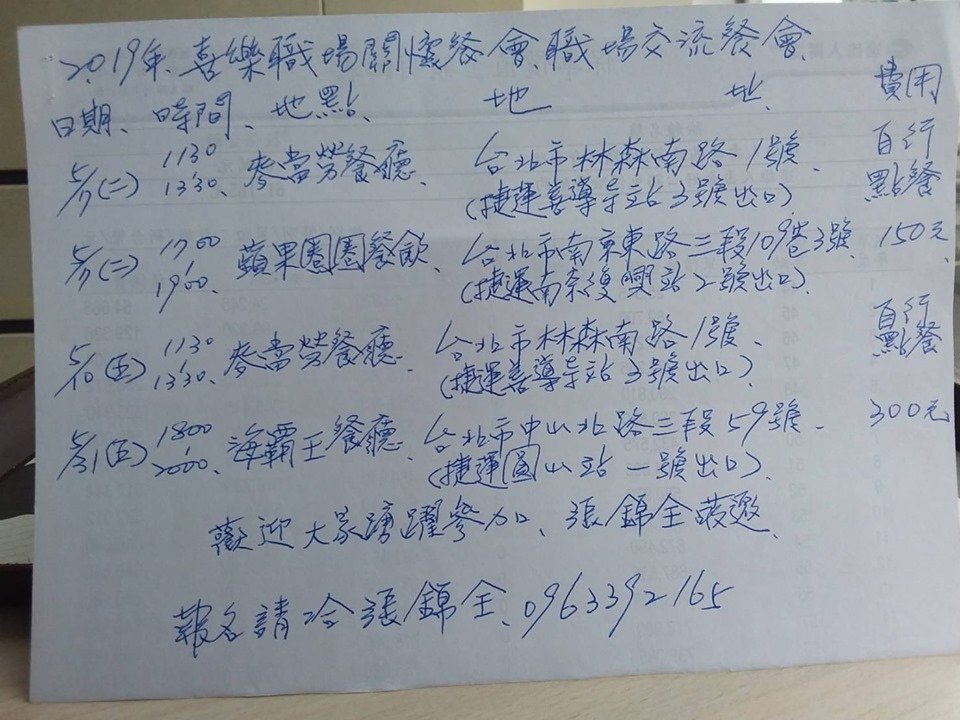 2019年、喜樂職場關懷餐會、職場交流餐會、
日期、時間、地點、地址、費用
5/7(二) 1130 1330、麥當勞餐廳、台北市林森南路1號、自行點餐
(捷運善導寺站3號出口)
5/7(二) 1700 1900、蘋果圈圈餐飲、台北市南京東路三段109巷3號、150元
(捷運南京復興站2號出口)
5/10(五) 1130 1330、麥當勞餐廳、台北市林森南路1號、自行點餐
(捷運善導寺站3號出口)
5/31(五) 1800 2000、海霸王餐廳、台北市中山北路三段59號、300元
(捷運圓山站一號出口)
歡迎大家踴躍參加、張錦全敬邀、
報名請洽張錦全、0963392165